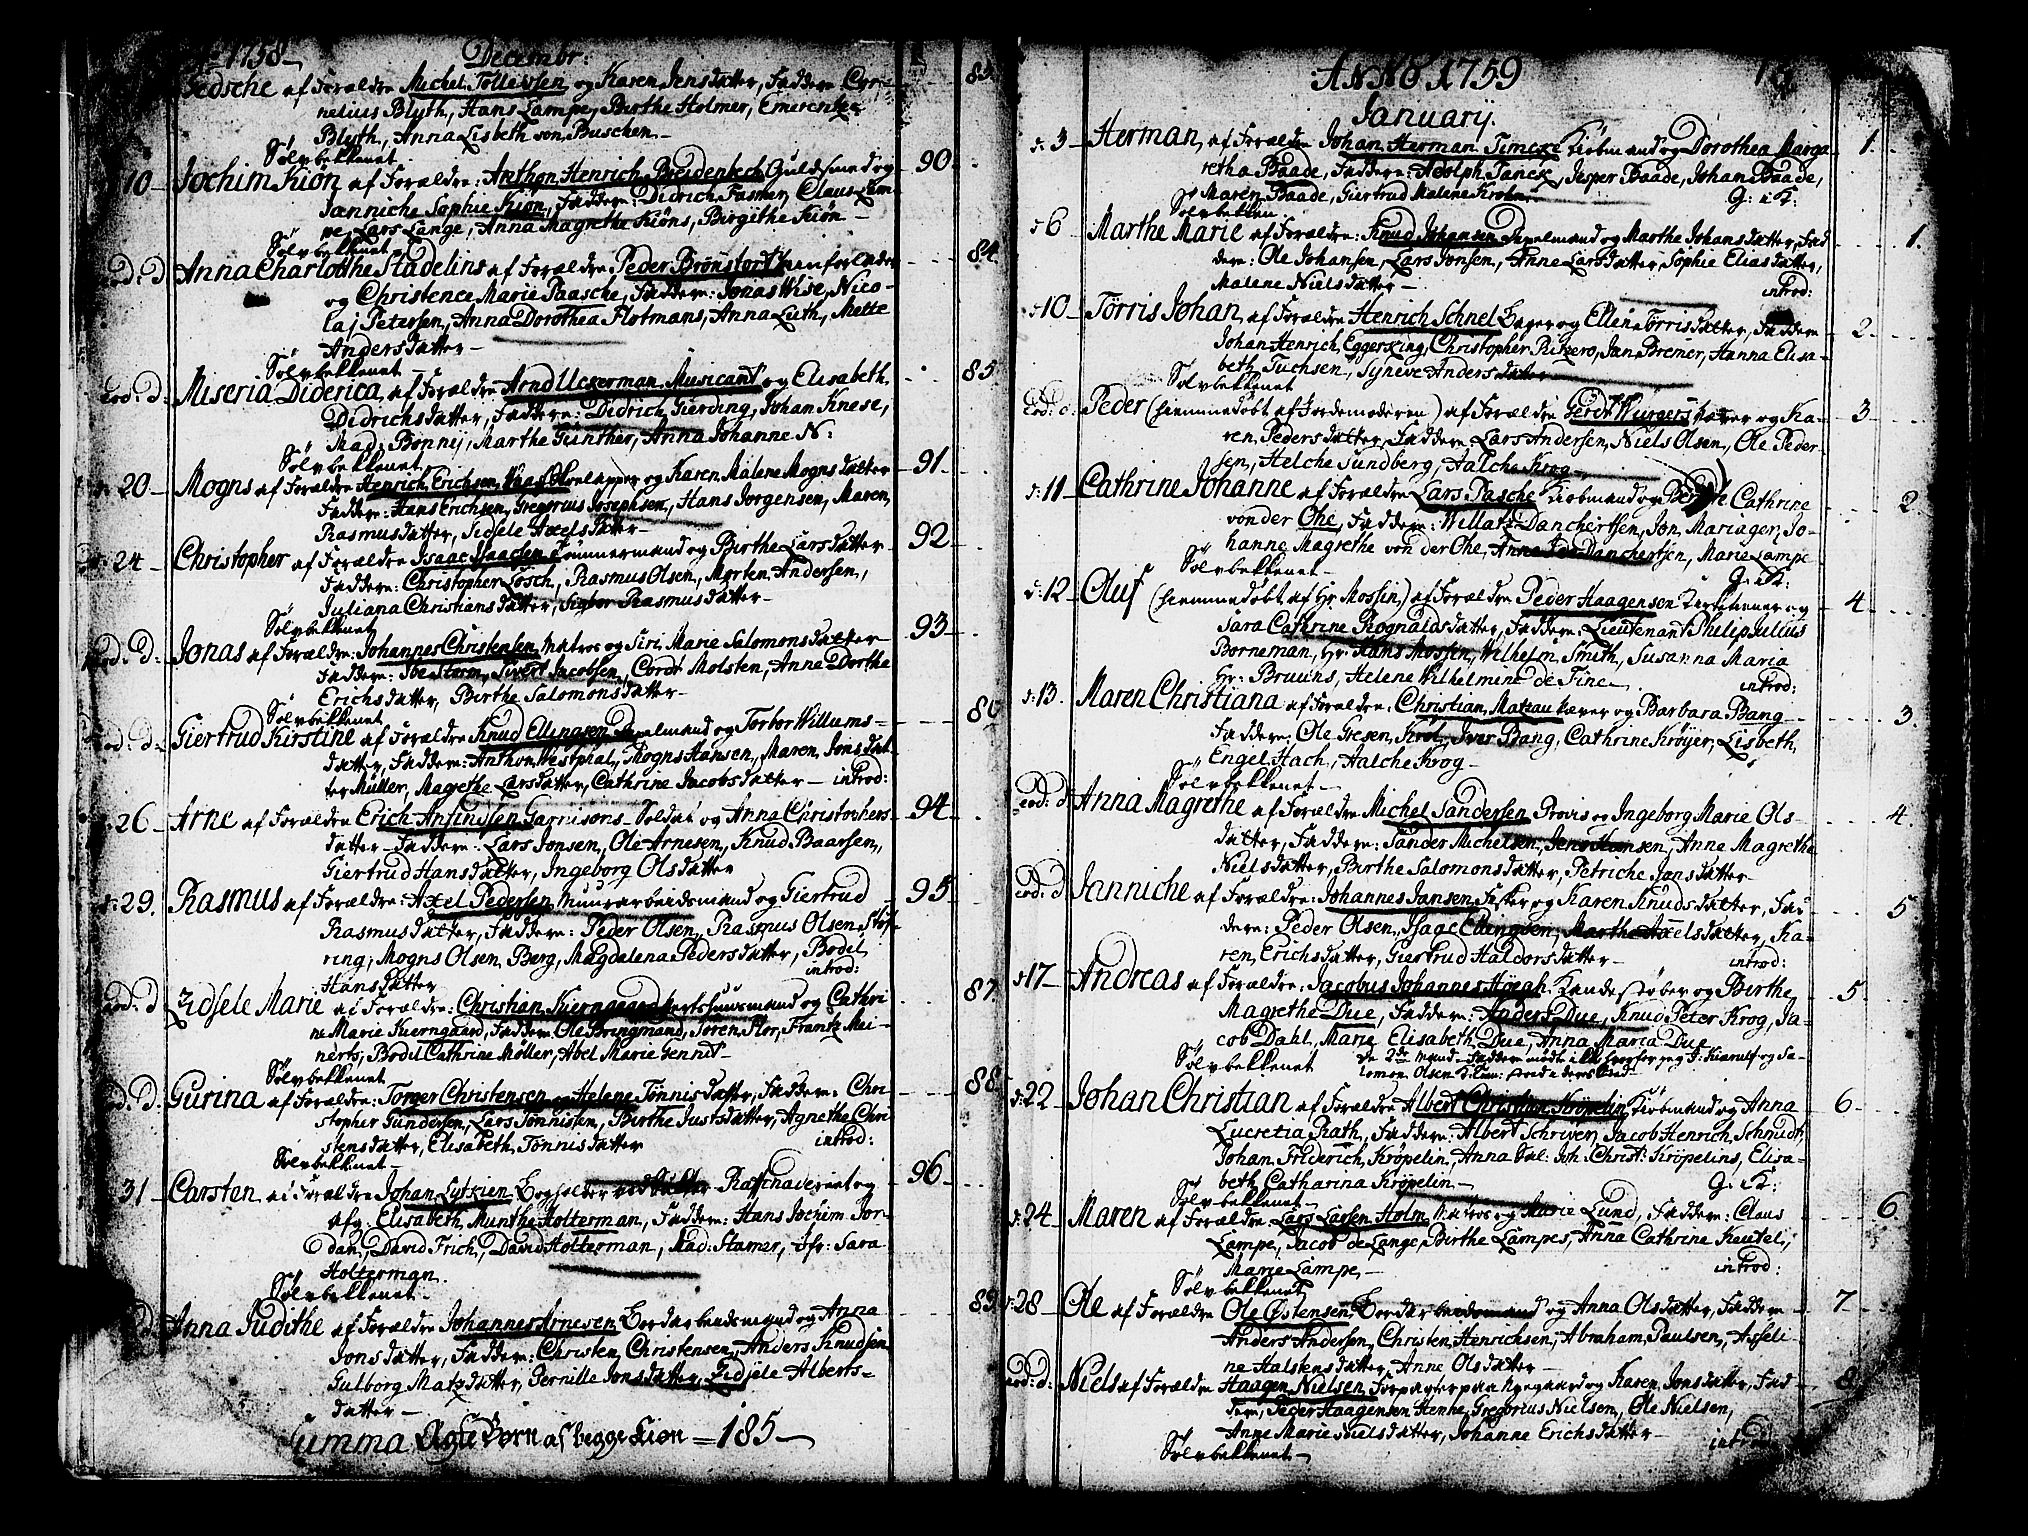 1758 Decembr:
Zedsche af Forældre Michel Tollevsen og Karen Jensdatter, Faddere Cor-
nelius Blyth, Hans Lampe, Birthe Holmer, Emerentze
Blyth, Anna Lisbeth von Buschen
83.
Sölvbekkenet
10 Jochim Kiön af Forældre: Anthon Henrich Breidenbech Guldsmed og
Janniche Sophie Kiön, Faddere: Didrich Fasmer, Claus Lam-
pe, Lars Lange, Anna Magrethe Kiöns, Birgithe Kiön
90.
Sölvbekkenet
eod. d Anna Charlothe Stadelins af Forældre Peder Brönstorf
og Christence Marie Paasche, Faddere: Jonas Wise, Nico-
laj Petersen, Anna Dorothea Flotmans, Anna Luth, Mette
Andersdatter
84
Sölvbekkenet
eod. d: Miseria Diderica, af Forældre Arnd Uckerman Musicant og Elisabeth
Didrichsdatter, Faddere: Didrich Gierding, Johan Knese,
Mad: Bonnij, Marthe Günther, Anna Johanne N:
85
Sölvbekkenet
20 Mogns af Forældre Henrich Erichsen og Karen Malene Mognsdatter
Faddere: Hans Erichsen, Gregorius Josephsen, Hans Jorgensen, Maren
Rasmusdatter, Sidsele Axelsdatter
91
24 Christopher af Forældre Isaac Isaacsen Tömmermand og Birthe Larsdatter
Faddere: Christopher Losch, Rasmus Olsen, Morten Andersen,
Juliana Christiansdatter, Sigbor Rasmusdatter
92
Sölvbekkenet
eod. d. Jonas af Forældre: Johannes Christensen Matros og Siri Marie Salomonsdatter
Faddere: Ibe Storm, Sivert Jacobsen, Cordt Molsten, Anne Dorthe
Erichsdatter, Birthe Salomonsdatter
93
Sölvbekkenet
eod. d. Giertrud Kirstine af Forældre Knud Ellingsen og Torbor Willums-
datter, Faddere: Anthon Westphal, Mogns Hansen, Maren Jonsdat-
ter Müller, Magrethe Larsdatter, Cathrine Jacobsdatter introd:
86
26 Arne af Forældre Erich Anfindsen Garnisons Soldat og Anna Christophers
datter Faddere: Lars Jonsen, Ole Arnesen, Knud Baarsen,
Giertrud Hansdatter, Ingeborg Olsdatter
94
29. Rasmus af Forældre: Axel Pedersen Muurarbeidsmand og Giertrud
Rasmusdatter, Faddere: Peder Olsen, Rasmus Olsen
ring, Mogns Olsen Berg, Magdalena Pedersdatter, Bodil
Hansdatter introd:
95
eod. d Zidsele Marie af Forældre: Christian Kierngaard og Cathri
ne Marie Kierngaard, Faddere Ole Bringmand, Sören Flor, Frantz Mei-
nerts, Bodil Cathrine Möller, Abel Marie Gennet
87.
Sölvbekkenet
eod. d. Gurina af Forældre: Torger Christensen og Helene Tönnisdatter, Faddere: Chri
stopher Gundersen, Lars Tönnissen, Birthe Justsdatter, Agnethe Chri
stensdatter, Elisabeth Tonnisdatter introd:
88
Sölvbekkenet
31 Carsten af Forældre Johan Lytkien Bogholder ved Raffinaderiet og
afg. Elisabeth Munthe Holterman, Faddere: Hans Jochim Jor-
dan, David Frich, David Holterman, Mad: Stamer, Jfr: Sara
Holterman
96
Sölvbekkenet
Anna Judithe af Forældre Johannes Arnesen Bordarbeidsmand og Anna
Jonsdatter, Faddere: Christen Christensen, Anders Knudsen
Gulborg Matzdatter, Pernille Jonsdatter, Zidsele Alberts-
datter
89
Summa Ægte Børn af begge Kiøn = 185

ANNO 1759
January
d: 3 Herman, af Forældre Johan Herman Timcke Kiöbmand og Dorothea Marga
retha Baade, Faddere: Adolph Janck, Jesper Baade, Johan Baade,
Maren Baade, Giertrud Malene Krohn G: i K:
1.
Sölvbekken
d: 6 Marthe Marie af Forældre: Knud Johansen og Marthe Johansdatter, Fad
dere: Ole Johansen, Lars Jonsen, Anne Larsdatter, Sophie Eliasdatter,
Malene Nielsdatter introd:
1.
d: 10 Törris Johan, af Forældre Henrich Schnel Bager og Ellen Törrisdatter, Faddere
Johan Henrich Eggerking, Christopher Rikzero, Jan Bremer, Hanna Elisa-
beth Tuchsen, Synneve Andersdatter
2.
Sölvbekkenet
eod: d: Peder (hiemmedöbt af Jordemoderen) af Forældre Gerdt Würgers og Ka-
ren Pedersdatter, Faddere: Lars Andersen, Niels Olsen, Ole Peder
sen, Helche Sundberg, Aalche Krog
3
d: 11 Cathrine Johanne af Forældre Lars Pasche Kiöbmand og Cathrine
von der Ohe, Faddere: Willatz Danchertsen, Jon Mariager, Jo-
hanne Magrethe von der Ohe, Anna Danchertsen, Marie Lampe
G: i K:
2
Sölvbekkenet
d: 12 Oluf (hiemmedöbt af Hr Mossin) af Forældre Peder Haagensen og
Sara Cathrine Rognaldsdatter, Faddere: Lieutenant Philip Julius
Borneman, Hr: Hans Mossin, Wilhelm Smith, Susanna Maria
Hr: Bruuns, Helene Wilhelmine de Fine introd:
4
d: 13. Maren Christiana af Forældre: Christian Matzau og Barbara Bang
Faddere: Ole Gresen, Iver Bang, Cathrine Kröyer, Lisbeth,
Engel Hach, Aalche Krog
3.
Sölvbekkenet
eod: d Anna Magrethe af Forældre Michel Sandersen og Ingeborg Marie Ols-
datter, Faddere: Sander Michelsen, Jens Hansen, Anne Magrethe
Nielsdatter, Birthe Salomonsdatter, Petriche Jansdatter
4.
eod: d Janniche af Forældre: Johannes Jansen Fisker og Karen Knudsdatter, Fad
dere: Peder Olsen, Isac Ellingsen, Marthe Axelsdatter, Ka-
ren Erichsdatter, Giertrud Haldorsdatter introd:
5
d: 17 Andreas af Forældre: Jacobus Johannes Höegh Kandestöber og Birthe
Magrethe Due, Faddere: Anders Due, Knud Peter Krog, Ja-
cob Dahl, Marie Elisabeth Due, Anna Maria Due
5.
Sölvbekkenet
d: 22 Johan Christian af Forældre Albert Christian Kröpelin Kiöbmand og Anna
Lucretia Rath, Faddere: Albert Schriver, Jacob Henrich Schmidt,
Johan Friderich Kröpelin, Anna Sal: Joh: Christ: Kröpelins, Elisa-
beth Catharina Kröpelin G: i K:
6
Sölvbekkenet
d: 24 Maren af Forældre Lars Larsen Holm Matros og Marie Lund, Faddere: Claus
Lampe, Jacob de Lange, Birthe Lampes, Anna Cathrine Keutel,
Marie Lampe introd:
6.
Sölvbekkenet
d: 28 Ole af Forældre Ole Östensen Bordarbeidsmand og Anna Olsdatter, Faddere
Anders Andersen, Christen Henrichsen, Abraham Paulsen, Asseli-
ne Halstensdatter, Anne Olsdatter
7.
eod: d: Niels af Forældre Haagen Nielsen Forpagter paa og Karen Jonsdatter, Fad
dere, Peder Haagensen, Gregorius Nielsen, Ole Nielsen,
Anne Marie Nielsdatter, Johanne Erichsdatter introd
8
Sölvbekkenet